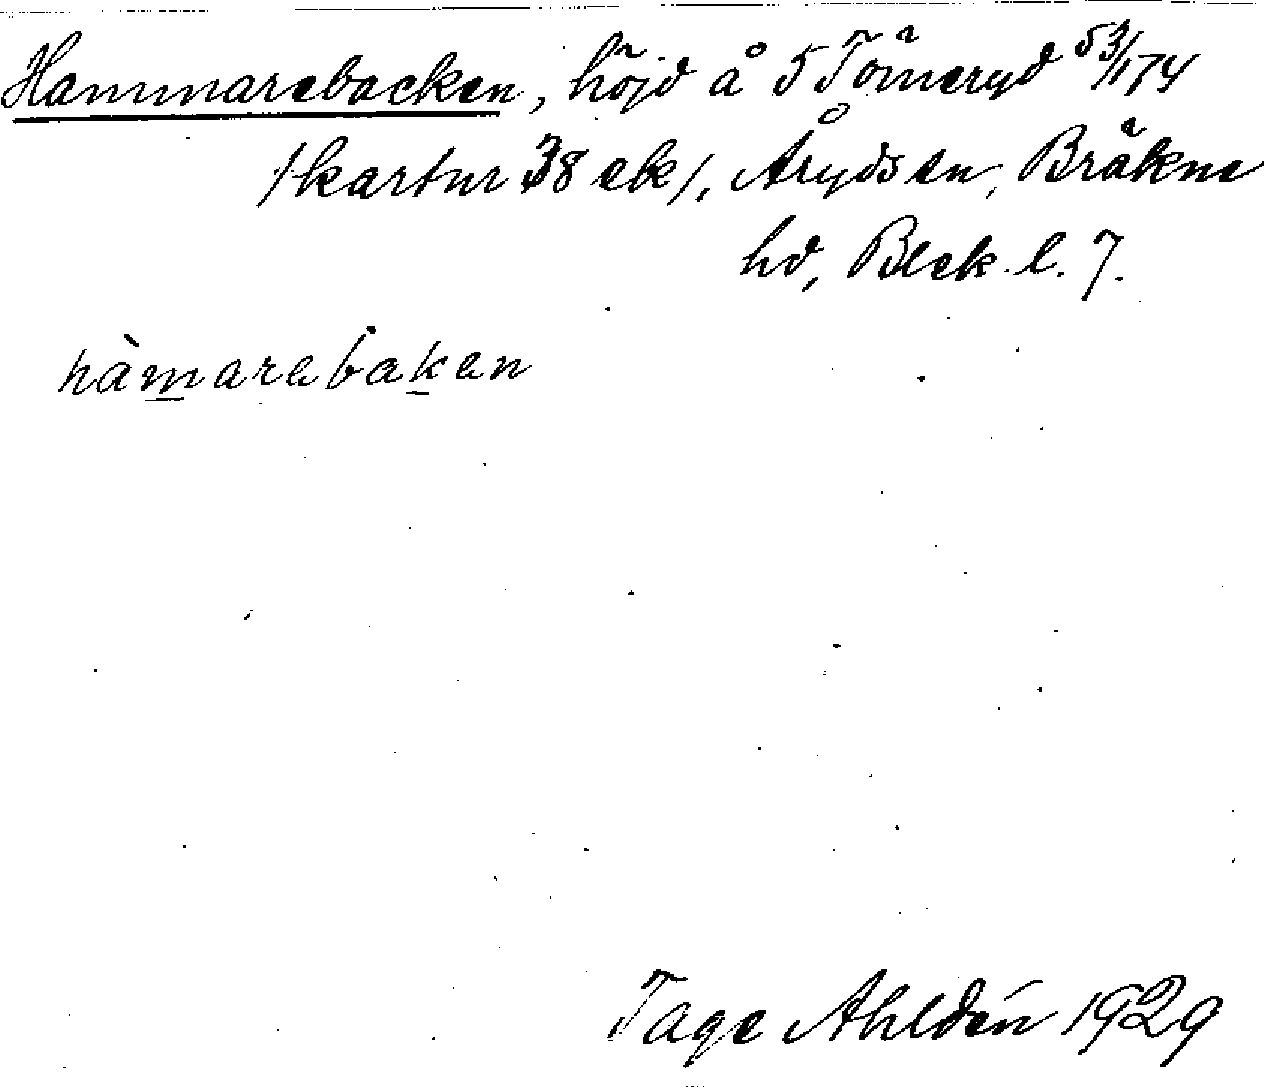 Hammarebacken, höjd å 5 Tömeryd 53/174
/kartnr 38 ek/, Åryds sn, Bräkne
hd, Blek. l. 7.
hàmarebaken
Tage Ahldén 1929